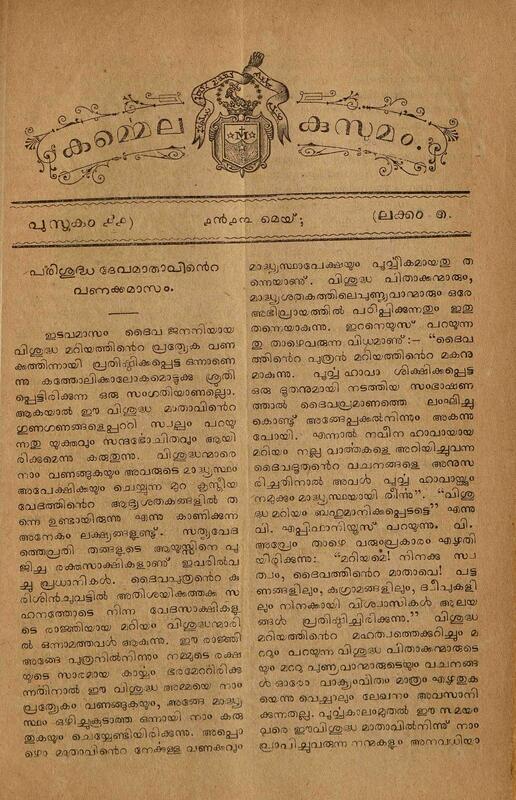 കർമ്മെല കുസുമം.
പുസ്തകം ൧൧) ൧൯൧൩ മെയ്; (ലക്കം ൫.
പരിശുദ്ധ ദേവമാതാവിൻെറ
വണക്കമാസം.
ഇടവമാസം ദൈവ ജനനിയായ
വിശുദ്ധ മറിയത്തിൻെറ പ്രത്യേക വണ
ക്കത്തിന്നായി പ്രതിഷ്ഠിക്കപ്പെട്ട ഒന്നാണെ
ന്നു കത്തോലിക്കാലോകമൊട്ടുക്കു ശ്രുതി
പ്പെട്ടിരിക്കുന്ന ഒരു സംഗതിയാണല്ലൊ.
ആകയാൽ ഈ വിശുദ്ധ മാതാവിൻെറ
ഗുണഗണങ്ങളെപ്പററി സ്വല്പം പറയു
ന്നതു യുക്തവും സന്ദർഭോചിതവും ആയി
രിക്കുമെന്നു കരുതുന്നു. വിശുദ്ധന്മാരെ
നാം വണങ്ങുകയും അവരുടെ മാദ്ധ്യസ്ഥം
അപേക്ഷിക്കയും ചെയ്യുന്ന മുറ ക്രിസ്തീയ
വേദത്തിൻെറ ആദ്യശതകങ്ങളിൽ ത
ന്നെ ഉണ്ടായിരുന്നു എന്നു കാണിക്കുന്ന
അനേകം ലക്ഷ്യങ്ങളുണ്ട്. സത്യവേദ
ത്തെപ്രതി തങ്ങളുടെ ആയുസ്സിനെ പൂ
ജിച്ച രക്തസാക്ഷികളാണ് ഇവരിൽവ
ച്ചു പ്രധാനികൾ. ദൈവപുത്രൻെറ കു
രിശിൻചുവട്ടിൽ അതിശയിക്കത്തക്ക സ
ഹനത്തോടെ നിന്ന വേദസാക്ഷികളു
ടെ രാജ്ഞിയായ മറിയം വിശുദ്ധന്മാരി
ൽ ഒന്നാമത്തവൾ ആകുന്നു. ഈ രാജ്ഞി
അങ്ങേ പുത്രനിൽനിന്നും നമ്മുടെ രക്ഷ
യുടെ സാരമായ കാര്യം ഭരമേററിരിക്കു
ന്നതിനാൽ ഈ വിശുദ്ധ അമ്മയെ നാം
പ്രത്യേകം വണങ്ങുകയും, അങ്ങേ മാദ്ധ്യ
സ്ഥം ഒഴിച്ചുകൂടാത്ത ഒന്നായി നാം കരു
തുകയും ചെയ്യേണ്ടിയിരിക്കുന്നു. അപ്പൊ
ഴൊ മാതാവിൻെറ നേക്കുള്ള വണക്കവും
മാദ്ധ്യസ്ഥാപേക്ഷയും പൂർവ്വികമായതു ത
ന്നെയാണു്. വിശുദ്ധ പിതാക്കന്മാരും,
മാദ്ധ്യശതകത്തിലെപുണ്യവാന്മാരും ഒരേ
അഭിപ്രായത്തിൽ പഠിപ്പിക്കുന്നതും ഇതു
തന്നെയാകുന്നു. ഇറനെയൂസ് പറയുന്ന
തു താഴെവരുന്ന വിധമാണ്:— "ദൈവ
ത്തിൻെറ പുത്രൻ മറിയത്തിൻെറ മകനു
മാകുന്നു. പൂർവ്വ ഹാവാ ശിക്ഷിക്കപ്പെട്ട
ഒരു ദൂതനുമായി നടത്തിയ സംഭാഷണ
ത്താൽ ദൈവപ്രമാണത്തെ ലംഘിച്ചു
കൊണ്ട് അങ്ങേപ്പക്കൽനിന്നും അകന്നു
പോയി. എന്നാൽ നവീന ഹാവായായ
മറിയം നല്ല വാർത്തകളെ അറിയിച്ചുവന്ന
ദൈവദൂതൻെറ വചനങ്ങളെ അനുസ
രിച്ചതിനാൽ അവൾ പൂർവ്വ ഹാവായ്ക്കും
നമുക്കും മാദ്ധ്യസ്ഥയായി തീർന്നു". "വിശു
ദ്ധ മറിയം ബഹുമാനിക്കപ്പെടട്ടെ" എന്നു
വി. എപ്പിഫാനിയൂസ് പറയുന്നു. വി.
അപ്രേം താഴെ വരുംപ്രകാരം എഴുതി
യിരിക്കുന്നു: "മറിയമേ! നിനക്കു സ്വ
സ്തി, ദൈവത്തിൻെറ മാതാവെ! പട്ട
ണങ്ങളിലും, കുഗ്രാമങ്ങളിലും, ദ്വീപുകളി
ലും നിനക്കായി വിശ്വാസികൾ ആലയ
ങ്ങൾ പ്രതിഷ്ഠിച്ചിരിക്കുന്നു." വിശുദ്ധ
മറിയത്തിൻെറ മഹത്വത്തെക്കുറിച്ചും മ
ററും പറയുന്ന വിശുദ്ധ പിതാക്കന്മാരുടെ
യും മററു പുണ്യവാന്മാരുടെയും വചനങ്ങ
ൾ ഓരോ വാക്യംവീതം മാത്രം എഴുതുക
യെന്നു വെച്ചാലും ലേഖനം അവസാനി
ക്കുന്നതല്ല. പൂർവ്വകാലംമുതൽ ഈ സമയം
വരെ ഈവിശുദ്ധ മാതാവിൽനിന്ന് നാം
പ്രാപിച്ചുവരുന്ന നന്മകളും അനവധിയാ